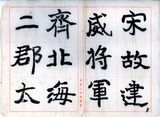 宋故建
威將軍
齊北海
二郡太